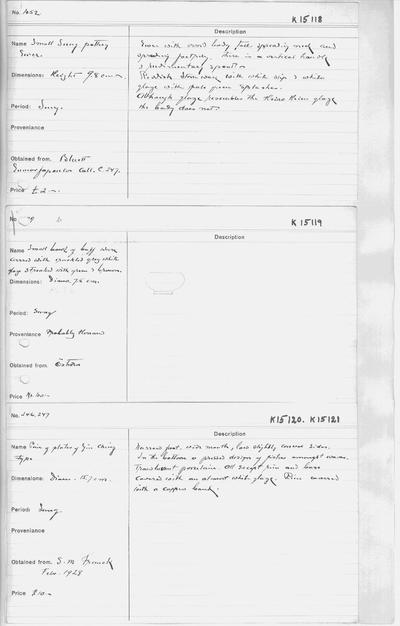 No. 1052
K 15118
Description
Name Small Sung pottery
Ewer.
Ewer with ovoid body tall spreading neck and
spreading foot. There is a vertical handle
& rudimentary spout.
Dimensions: Height 9.8 c.m.
Reddish Stoneware with white slip & white
glaze with pale green splashes.
Although glaze resembles the glaze
the body does not.
Period: Sung.
Provenance
Obtained from. Bluett
Eumorfopoulos Coll. C.247.
Price £2-.
No
K 15119
Description
Name Small bowl of buff ware
covered with crackled grey white
glaze streaked with green & brown.
Dimensions: Diam. 7.6 cm.
Period: Sung
Provenance Probably Honan
Obtained from.
Price
No. 246, 247
K15120. K15121
Description
Name Pair of plates of Ying Ching
type
Narrow foot. wide mouth, low slightly convex sides.
In the bottom a pressed design of fishes amongst waves.
Translucent porcelain. All except rim and base
covered with an almost white glaze. Rim covered
with a copper band.
Dimensions: Diam.
Period: Sung.
Provenance
Obtained from. S. M. Franck
Feby. 1928
Price £10-